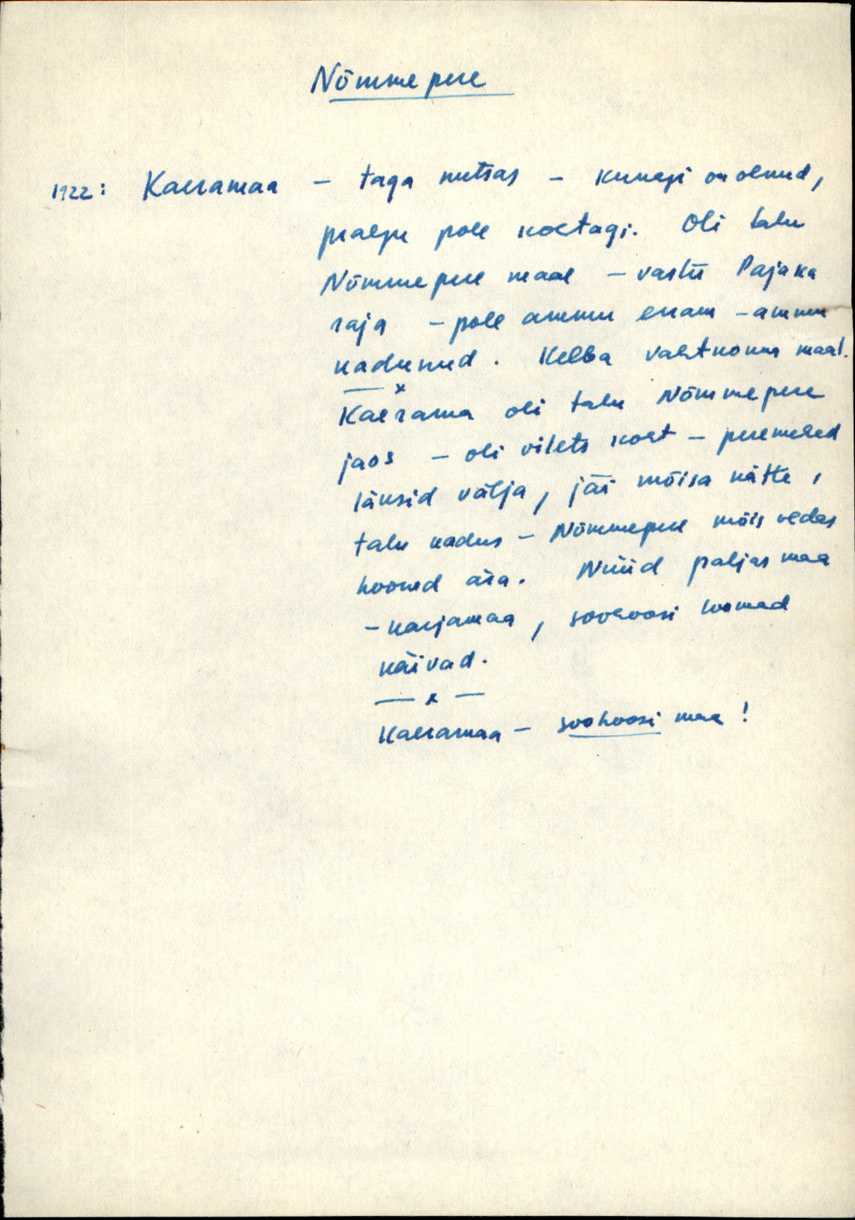 Nõmmepere
1922: Kaeramaa – taga metsas – kunagi on olnud,
praegu pole kohtagi. Oli talu
Nõmmepere maal – vastu Pajaka
raja – pole ammu enam – ammu
kadunud. Kelba vahtkonna maal.
— x
Kaerama oli talu Nõmmepere
jaos – oli vilets koht – peremehed
läksid välja, jäi mõisa kätte,
talu kadus – Nõmmepere mõis vedas
hooned ära. Nüüd paljas maa
– karjamaa, sovhoosi loomad
käivad.
— x —
Kaeramaa – sovhoosi maa!